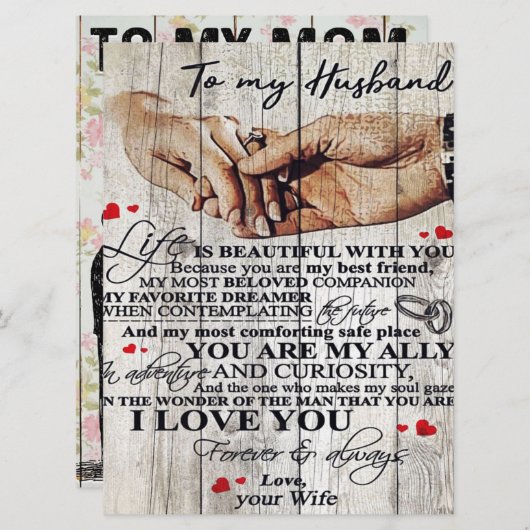 TO MY MOM
To my Husband
Life IS BEAUTIFUL WITH YOU
Because you are my best friend,
MY MOST BELOVED COMPANION
MY FAVORITE DREAMER
WHEN CONTEMPLATING the future
And my most comforting safe place
YOU ARE MY ALLY
In adventure AND CURIOSITY,
And the one who makes my soul gaze
IN THE WONDER OF THE MAN THAT YOU ARE
I LOVE YOU
Forever & always
Love,
your Wife